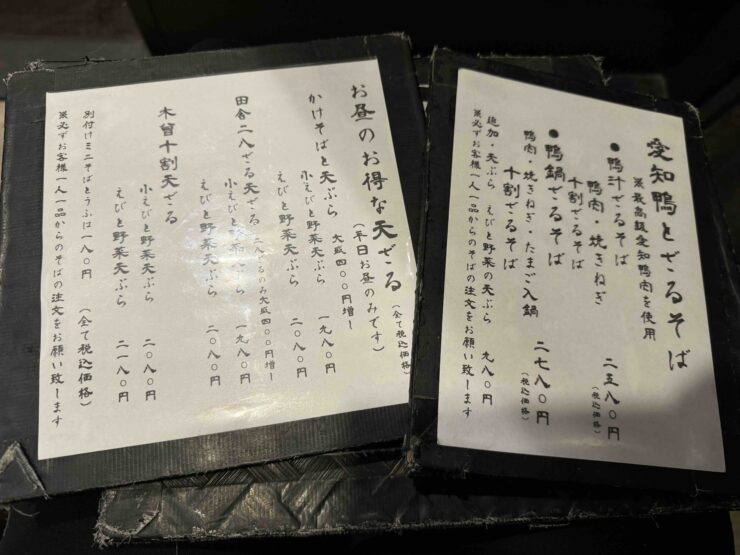 愛知鴨とざるそば
※最高級愛知鴨肉を使用
●鴨汁ざるそば
鴨肉・焼きねぎ
十割ざるそば
二五八〇円
(税込価格)
●鴨鍋ざるそば
鴨肉・焼きねぎ・たまご入鍋
十割ざるそば
二七八〇円
(税込価格)
追加・天ぷら えびと野菜の天ぷら 九八〇円
※必ずお客様一人一品からのそばの注文をお願い致します
お昼のお得な天ざる (全て税込価格)
(平日お昼のみです)
かけそばと天ぷら 大盛四〇〇円増し
小えびと野菜天ぷら 一九八〇円
えびと野菜天ぷら 二〇八〇円
田舎二八ざる天ざる 二八ざるのみ大盛四〇〇円増し
小えびと野菜天ぷら 一九八〇円
えびと野菜天ぷら 二〇八〇円
木曽十割天ざる
小えびと野菜天ぷら 二〇八〇円
えびと野菜天ぷら 二一八〇円
別付けミニそばとうふは一八〇円 (全て税込価格)
※必ずお客様一人一品からのそばの注文をお願い致します